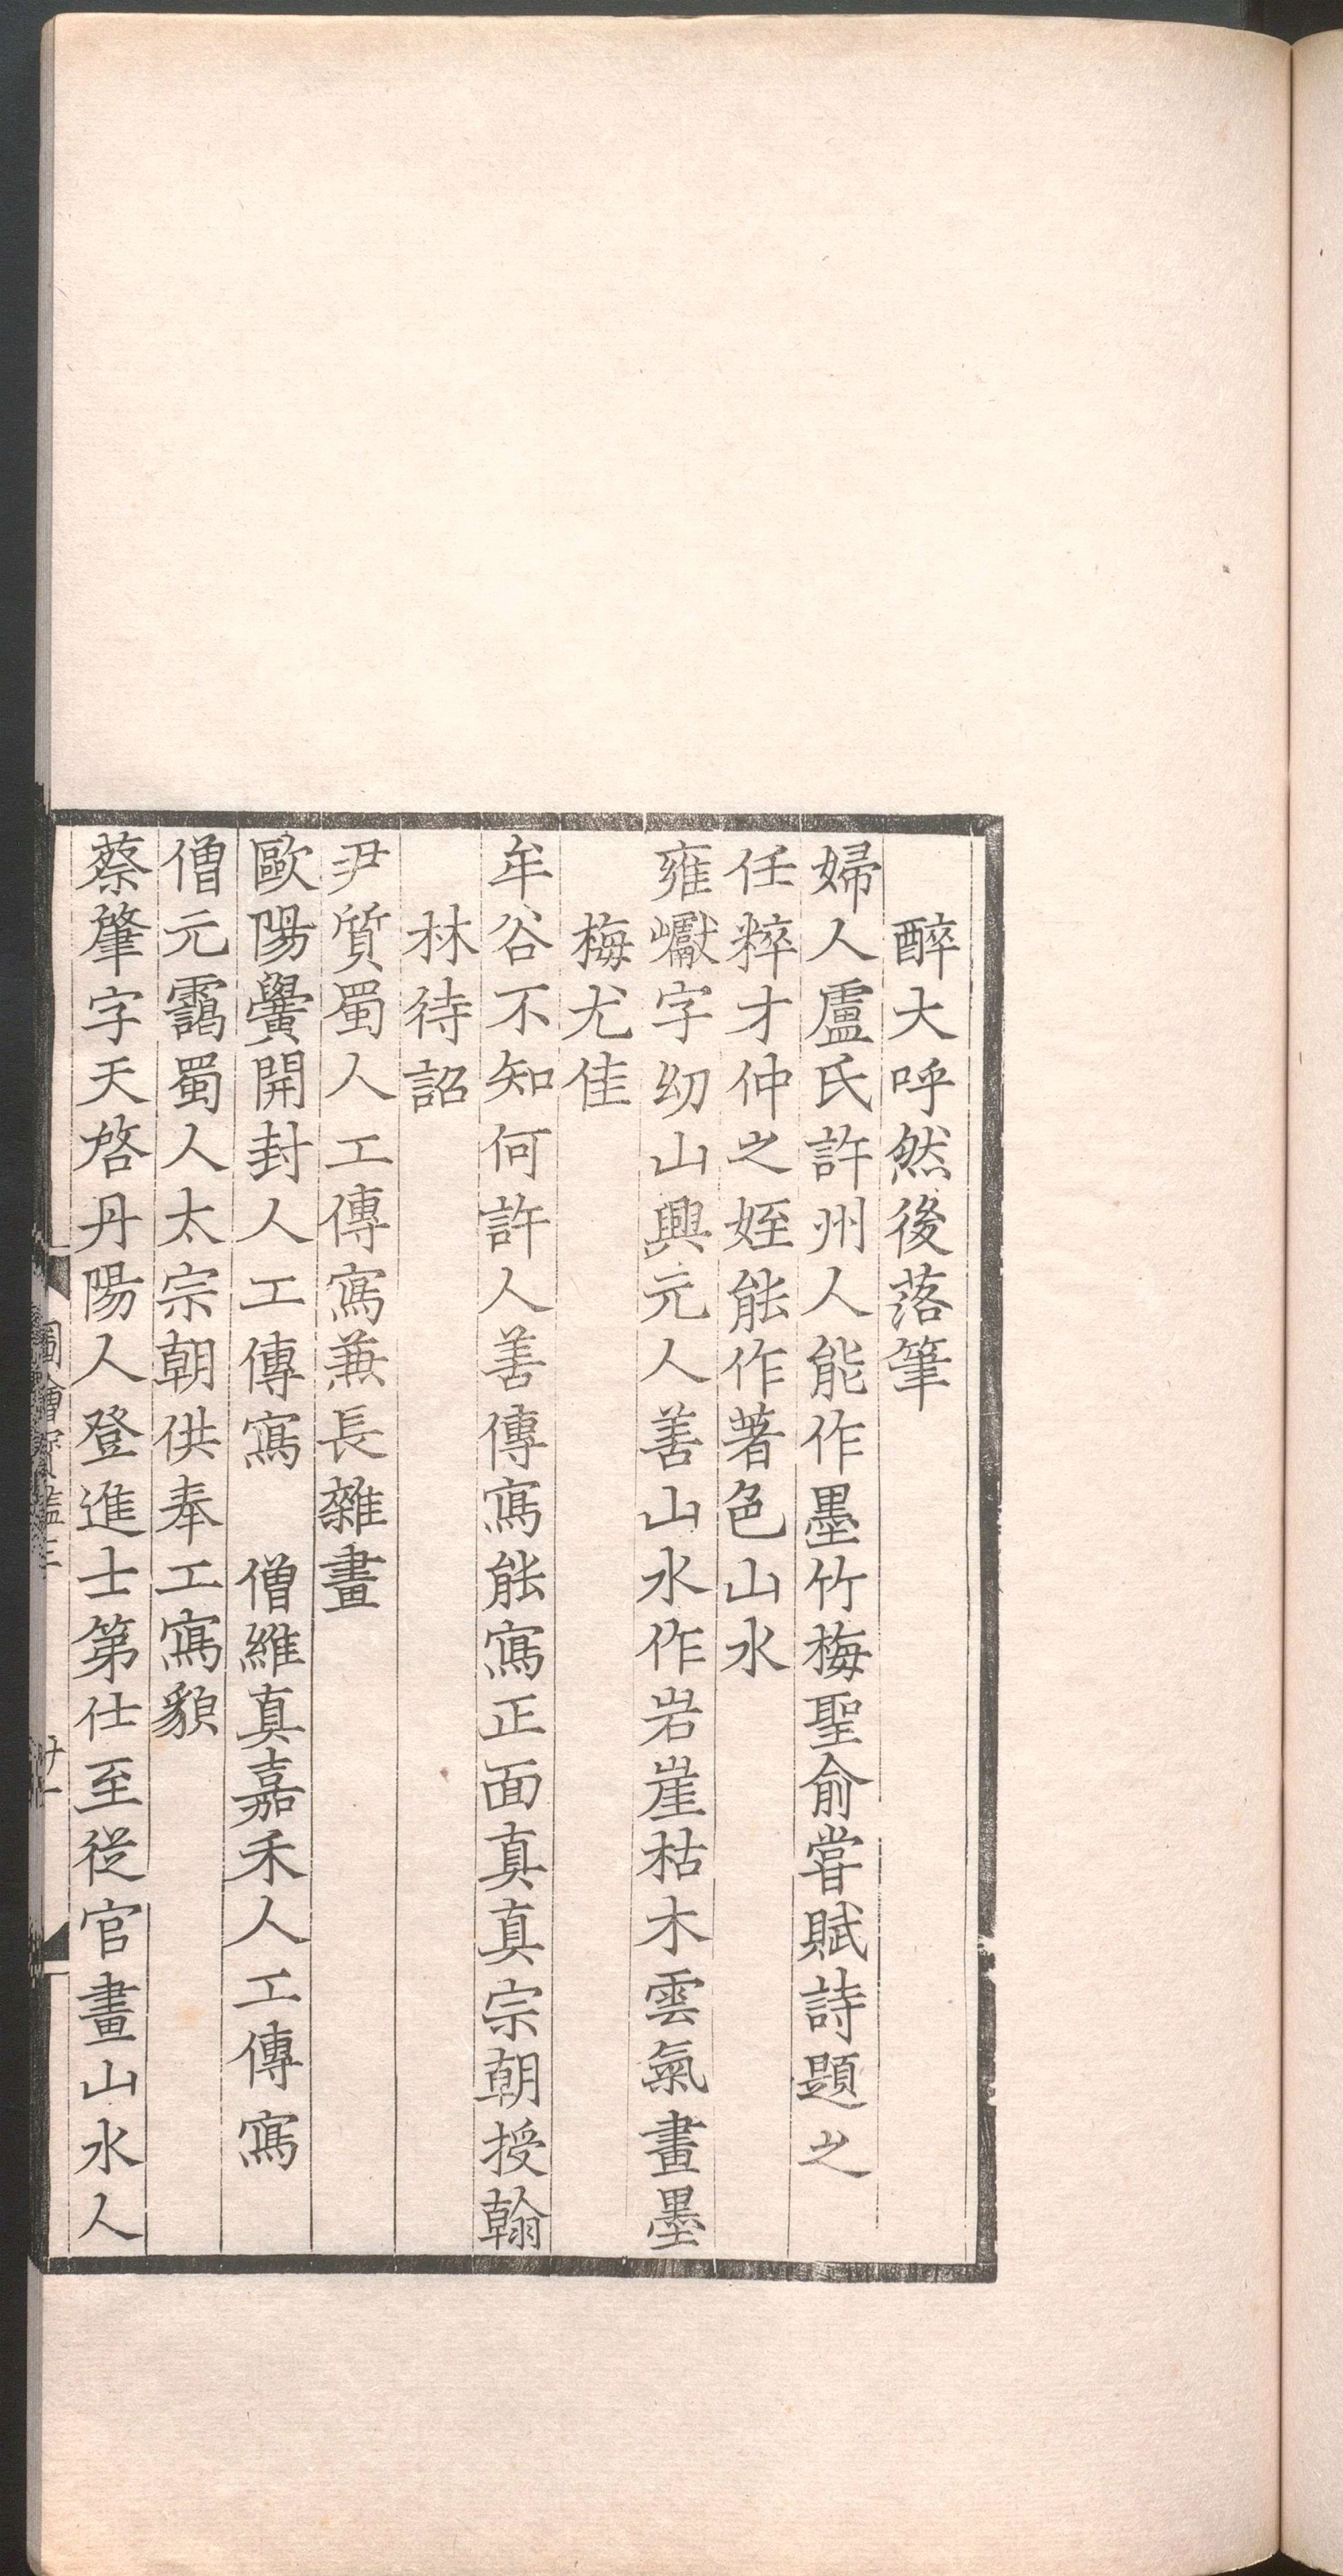 醉大呼然後落筆
婦人盧氏許州人能作墨竹梅聖俞嘗賦詩題之
任粹才仲之姪能作著色山水
雍巘字幼山興元人善山水作岩崖枯木雲氣畫墨
梅尤佳
牟谷不知何許人善傳寫能寫正面真真宗朝授翰
林待詔
尹質蜀人工傳寫兼長雜畫
歐陽黌開封人工傳寫　僧維真嘉禾人工傳寫
僧元靄蜀人太宗朝供奉工寫貌
蔡肇字天啓丹陽人登進士第仕至從官畫山水人
圖繪寶鑑三
廿一